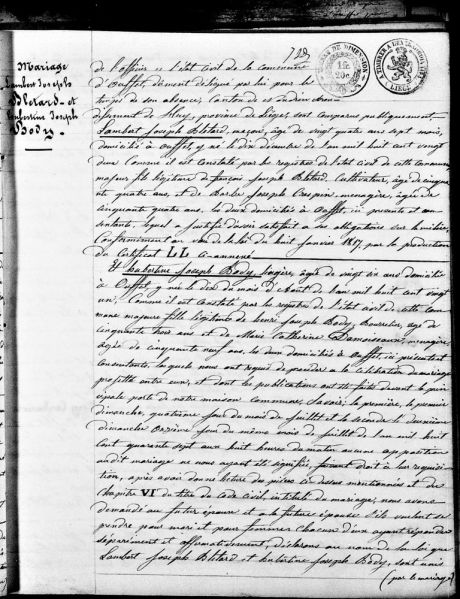 Mariage
Lambert Joseph
Bletard et
hubertine Joseph
Body.
de l'officier de l'état civil de la commune
d'ouffet, dûment délégué par lui pour
de son absence, Canton de
de huy, province de Liège, sont comparus publiquement
Lambert Joseph Bletard, maçon, âgé de vingt quatre ans sept mois,
domicilié à ouffet, y né le dix décembre de l'an mil huit cent vingt
deux Comme il est constaté par les registres de l'état civil de cette commune
majeur fils légitime de françois Joseph Bletard, Cultivateur, âgé de cinquante
quatre ans, et de Barbe Joseph Crespin, ménagère, âgée de
cinquante quatre ans, les deux domiciliés à ouffet, ici présents et con-
sentants, lequel a justifié d'avoir satisfait à ses obligations sur la milice,
Conformément au vœu de la loi du huit janvier 1817, par la production
du Certificat LL Ci annexé
Et hubertine Joseph Body, âgée de vingt six ans domiciliée
à ouffet, y née le deux du mois d'Août de l'an mil huit cent vingt
un, Comme il est constaté par les registres de l'état civil de cette com-
mune majeure fille légitime de henri Joseph Body, Bourrelier, âgé de
cinquante trois ans et de Marie Catherine Damoiseaux, ménagère,
âgée de cinquante neuf ans, les deux domiciliés à ouffet, ici présents et
consentants, lesquels nous ont requis de procéder à la célébration du mariage
projetté entre eux, et dont les publications ont été faites devant la prin-
cipale porte de notre maison Commune, savoir; la première, le premier
dimanche, quatrième jour du mois de juillet et la seconde le deuxième
dimanche onzième jour du même mois de juillet de l'an mil huit
cent quarante sept aux huit heures du matin aucune opposition
audit mariage ne nous ayant été signifiée, faisant droit à leur réquisi-
tion, après avoir donné lecture des pièces ci dessus mentionnées et du
chapitre VI du titre du code civil, intitulé du mariage, nous avons
demandé au futur époux et à la future épouse s'ils veulent se
prendre pour mari et pour femme; Chacun d'eux ayant répondu
séparément et affirmativement, déclarons au nom de la loi que
Lambert Joseph Bletard et hubertine Joseph Body, sont unis
(par le mariage)